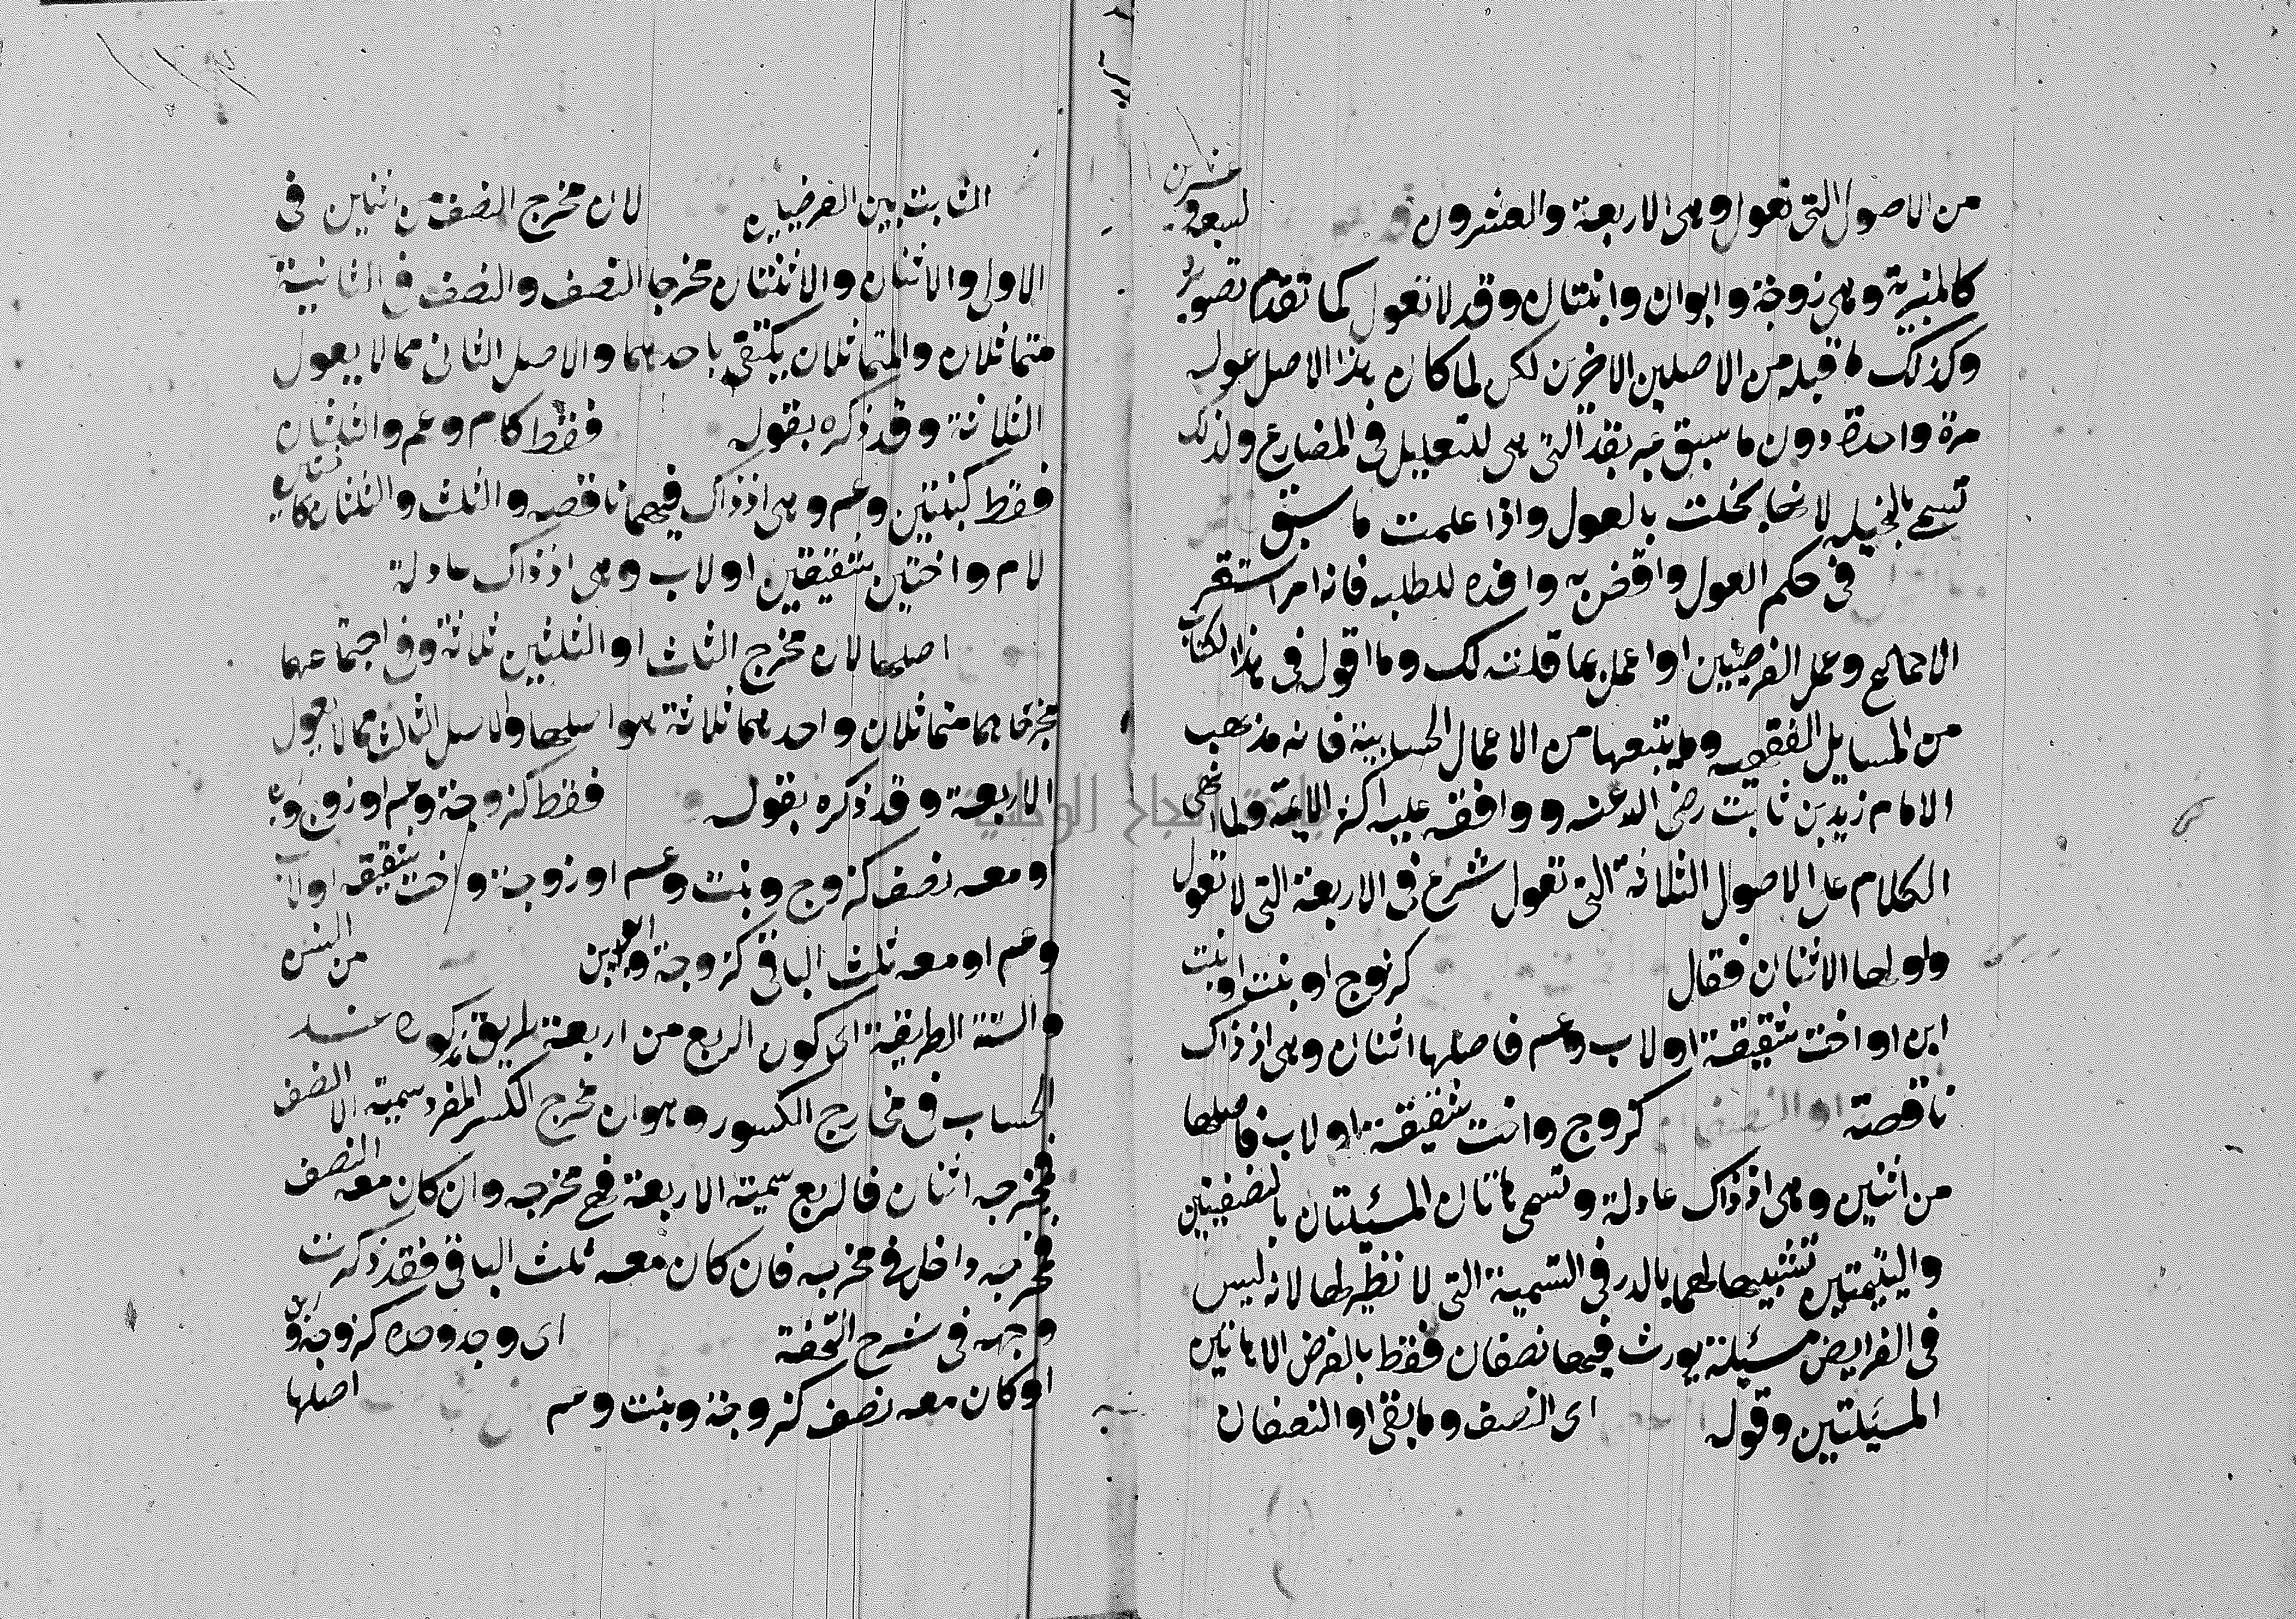 من الاصول التي تعول وهي الاربعة والعشرون لسبعة وعشرين
كالمنبرية وهي زوجة وابوان وابنتان وقد لا تعول كما تقدم تصويره
وكذلك ما قبله من الاصلين الاخرين لكن لما كان هذا الاصل عوله
مرة واحدة دون ما سبق عبر بقد التي هي للتعليل في المضارع ولذلك
تسمى بالبخيلة لانها بخلت بالعول واذا علمت ما سبق
في حكم العول واقض به وافده للطلبه فانه امر استقر
الاجماع وعمل الفرضيين او اعمل بما قلته لك وما اقول في هذا الكتاب
من المسايل الفقهيه وما يتبعها من الاعمال الحسابية فانه مذهب
الامام زيد بن ثابت رضي الله عنه ووافقه عليه اكثر الايمة ولما انهى
الكلام على الاصول الثلاثة التي تعول شرع في الاربعة التي لا تعول
واولها الاثنان فقال كزوج او بنت او بنت
ابن او اخت شقيقة او لاب وعم فاصلها اثنان وهي اذ ذاك
ناقصة او النصفان كزوج واخت شقيقة او لاب فاصلها
من اثنين وهي اذ ذاك عادلة وتسمى هاتان المسئلتان بالنصفيتين
واليتيمتين تشبيها لهما بالدر في التسمية التي لا نظير لها لانه ليس
في الفرايض مسئلة يورث فيها نصفان فقط بالفرض الا هاتين
المسئلتين وقوله اى النصف وما بقى او النصفان
الثابت بين الفرضيين لان مخرج النصف من اثنين في
الاولى والاثنان والاثنتان مخرجا النصف والنصف في الثانية
متماثلان والمتماثلان يكتفى باحدهما والاصل الثاني مما لا يعول
الثلاثة وقد ذكره بقوله فقط كام وعم والثلثان
فقط كبنتين وعم وهي اذ ذاك فيهما ناقصه والثلث والثلثان كاختين
لام واختين شقيقتين او لاب وهي اذ ذاك عادلة
اصلها لان مخرج الثلث او الثلثين ثلاثة وفي اجتماعهما
مخرجاهما متماثلان واحدهما ثلاثة هو اصلها والاصل الثالث مما لا يعول
الاربعة وقد ذكره بقوله فقط كزوجة وعم او زوج وابن
او معه نصف كزوج وبنت وعم او زوجة واخت شقيقه او لاب
وعم او معه ثلث الباقي كزوجة وابوين من السنة
والسنة الطريقة اى كون الربع من اربعة طريق مذكوره عند
الحساب في مخارج الكسور وهو ان مخرج الكسر المفرد سمية الا النصف
فمخرجه اثنان فالربع سمية الاربعة فهي مخرجه وان كان معه النصف
فمخرجه داخل في مخرجه فان كان معه ثلث الباقي فقد ذكرت
وجهه في شرح التحفة اى وجد وحده كزوجة وابن
او كان معه نصف كزوجة وبنت وعم اصلها
جامعة النجاح الوطنية